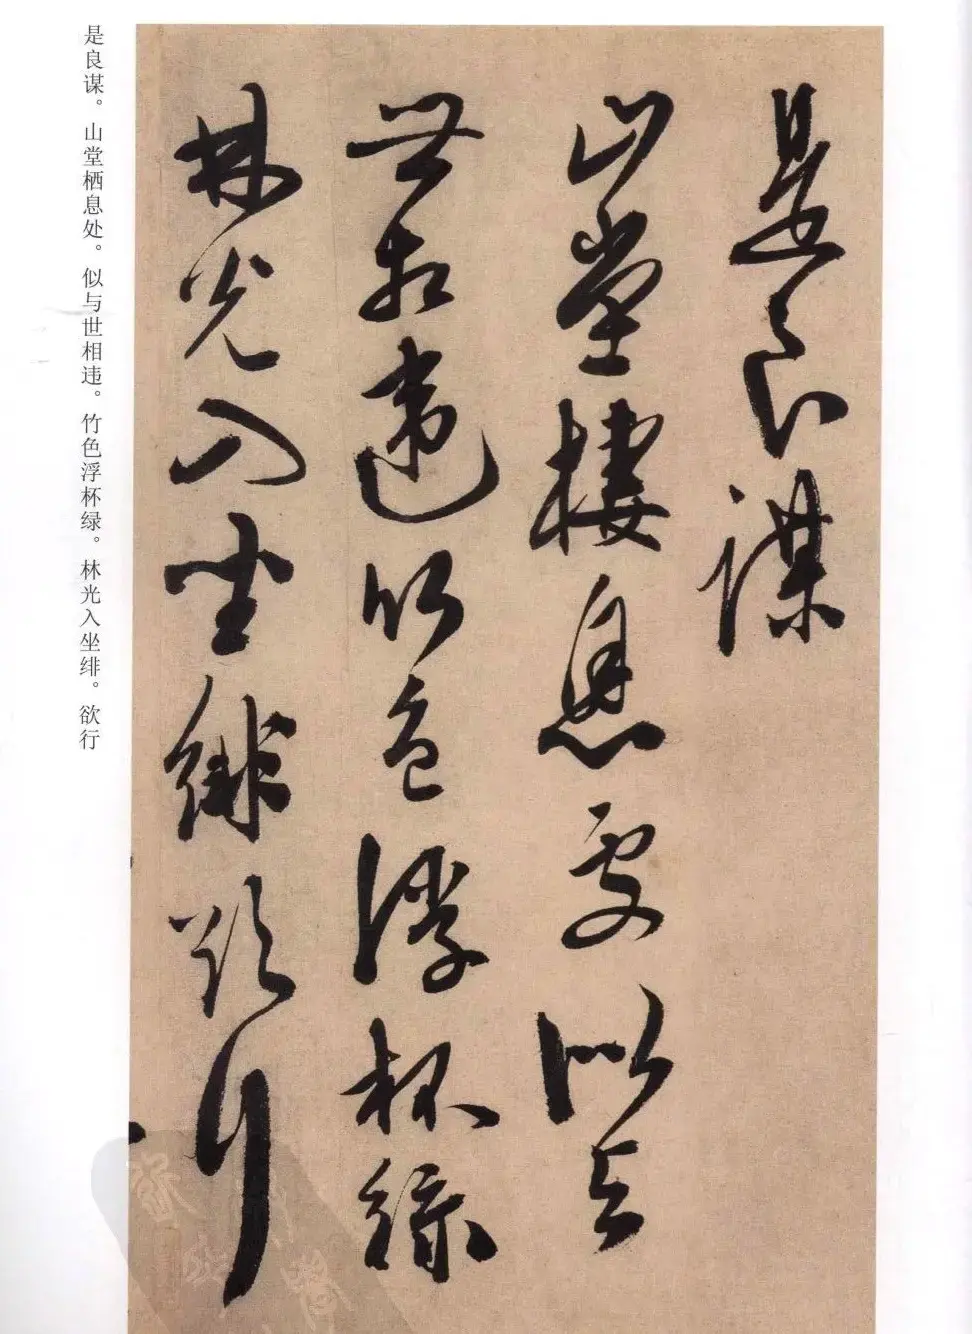 是良谋
山堂棲息处似与
世相違竹色浮杯緑
林光入坐緋欲行
是良谋。山堂栖息处。似与世相违。竹色浮杯绿。林光入坐绯。欲行